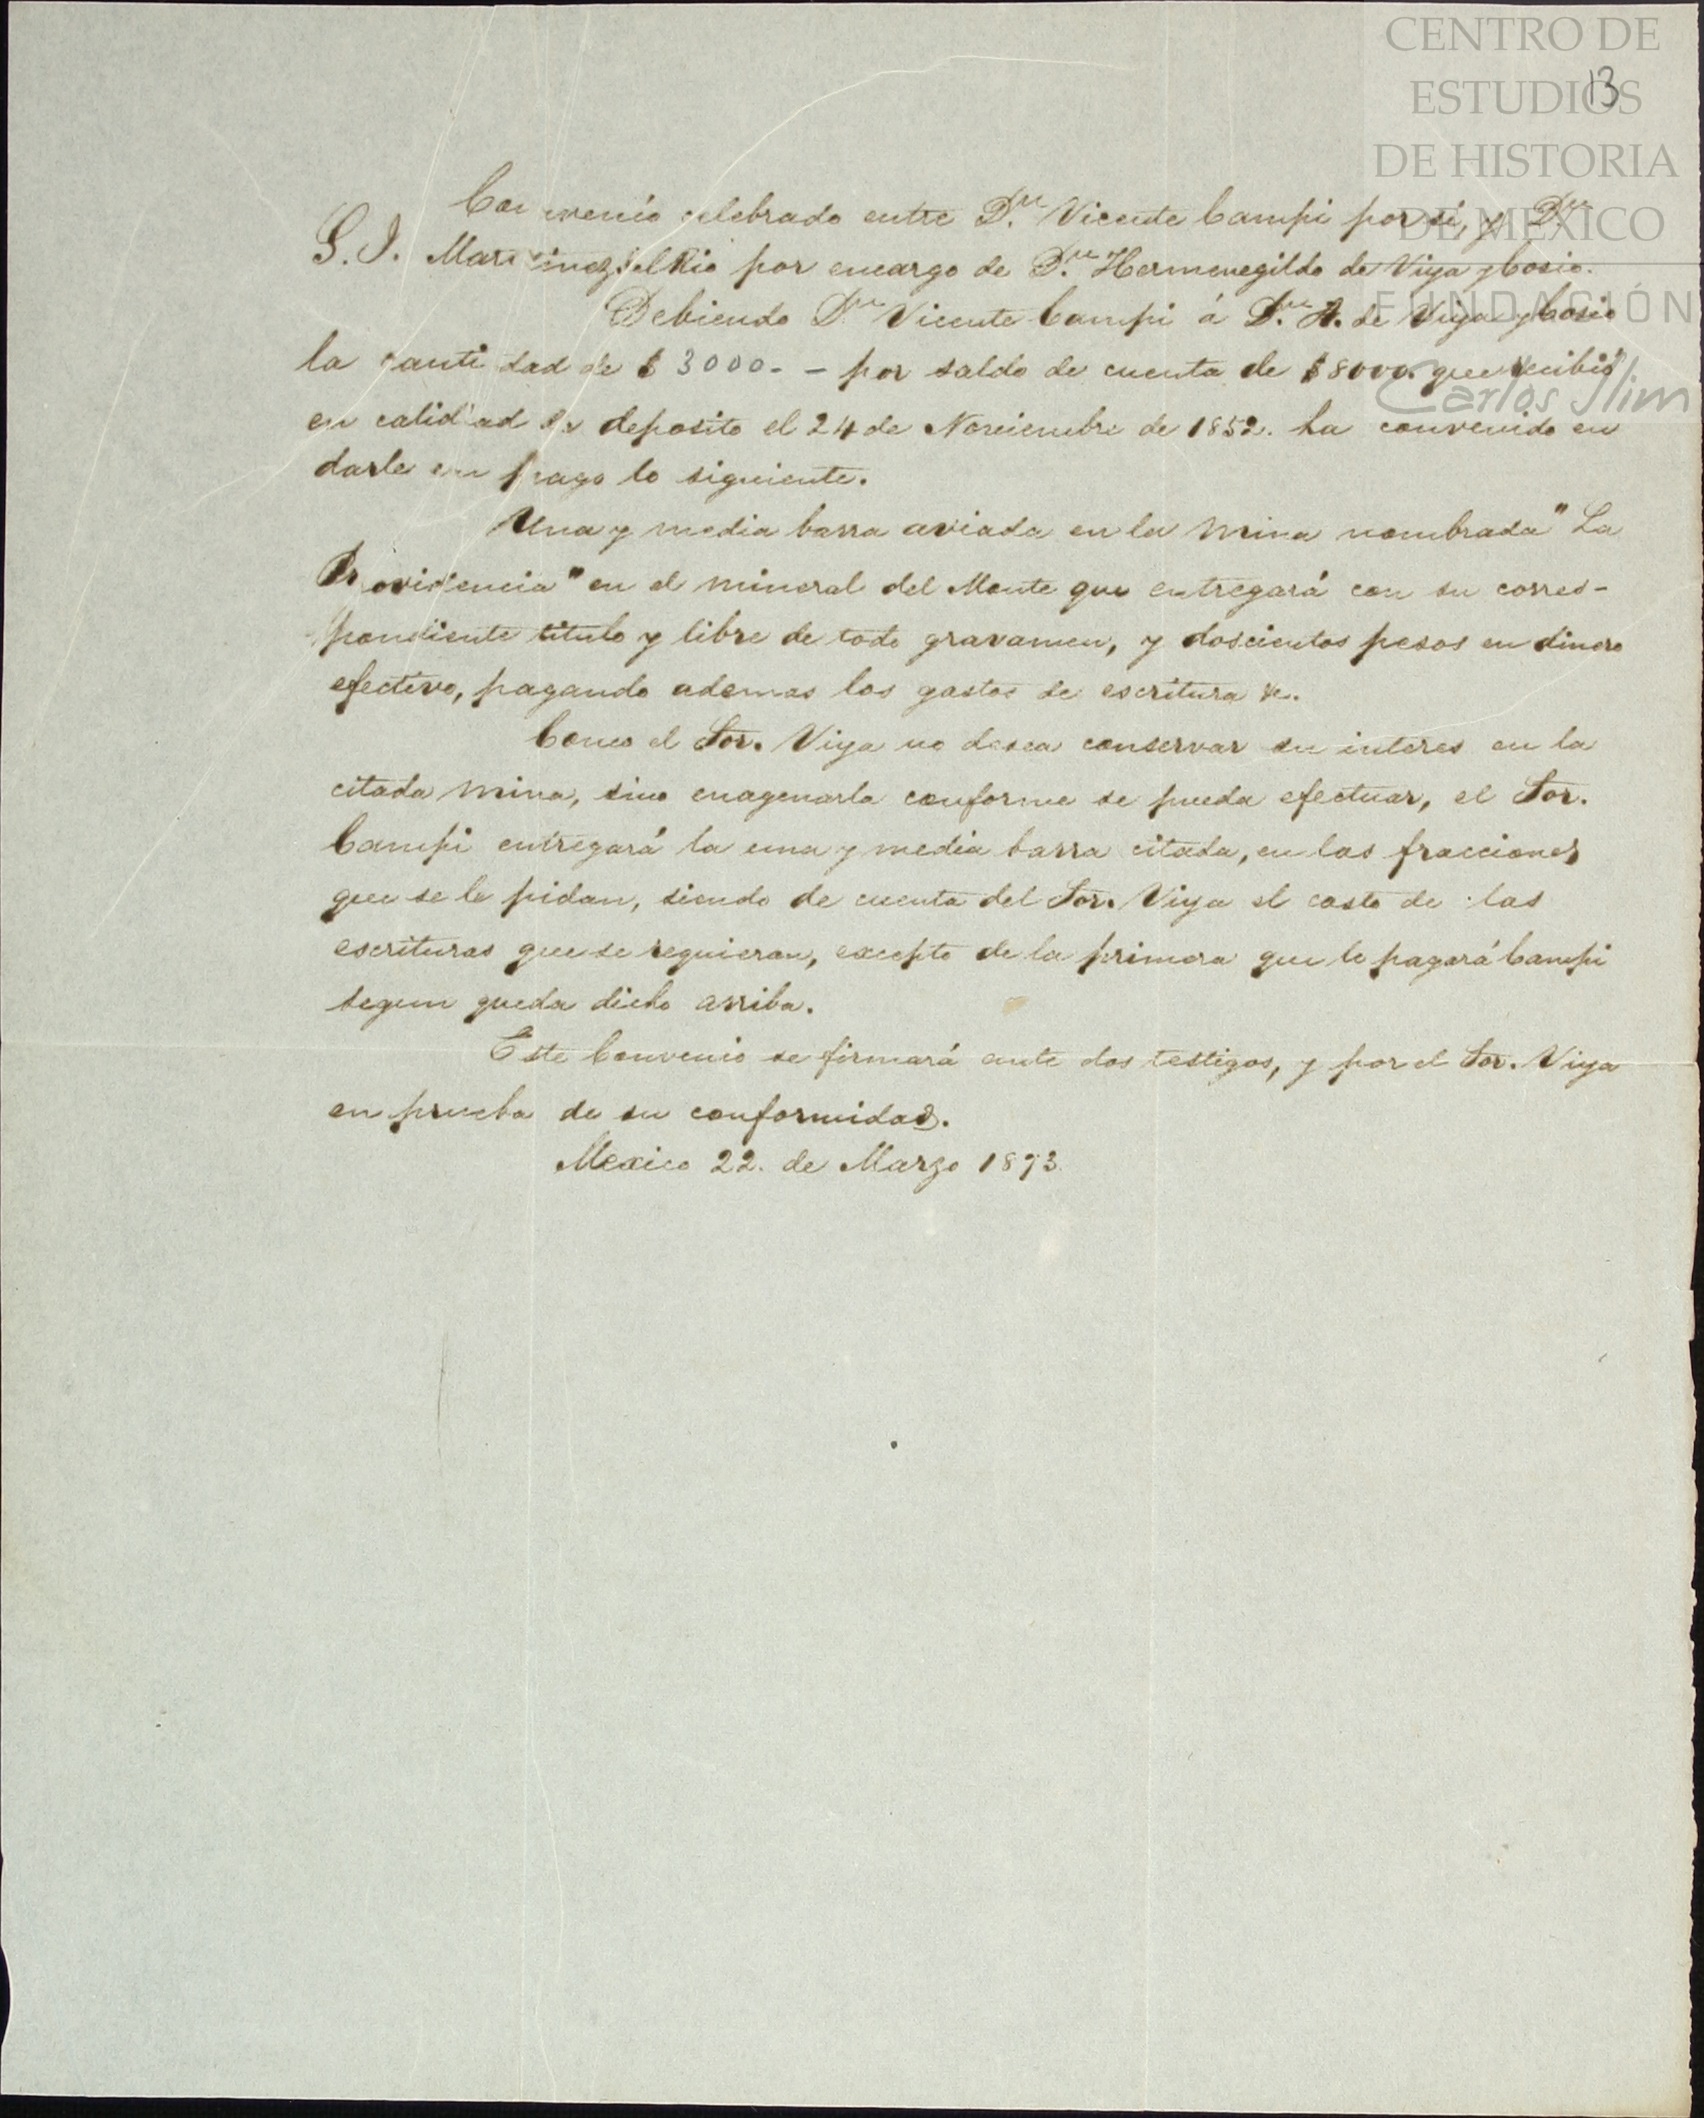 CENTRO DE
ESTUDIOS
13
DE HISTORIA
DE MÉXICO
FUNDACIÓN
Carlos Slim
Convenio celebrado entre D.n Vicente Campi por sí, y D.n
G. I. Martinez del Rio por encargo de D.n Hermenegildo de Viya y Cosio.
Debiendo D.n Vicente Campi á D.n H. de Viya y Cosio
la cantidad de $ 3000.- - por saldo de cuenta de $8000. que recibió
en calidad de deposito el 24 de Noviembre de 1852. ha convenido en
darle en pago lo siguiente.
Una y media barra aviada en la mina nombrada "La
Providencia" en el mineral del Monte que entregará con su corres-
pondiente titulo y libre de todo gravamen, y doscientos pesos en dinero
efectivo, pagando ademas los gastos de escritura &c.
Como el Sor. Viya no desea conservar su interes en la
citada mina, sino enagenarla conforme se pueda efectuar, el Sor.
Campi entregará la una y media barra citada, en las fracciones
que se le pidan, siendo de cuenta del Sor. Viya el costo de las
escrituras que se requieran, excepto de la primera que le pagará Campi
segun queda dicho arriba.
Este Convenio se firmará ante dos testigos, y por el Sor. Viya
en prueba de su conformidad.
Mexico 22. de Marzo 1893.